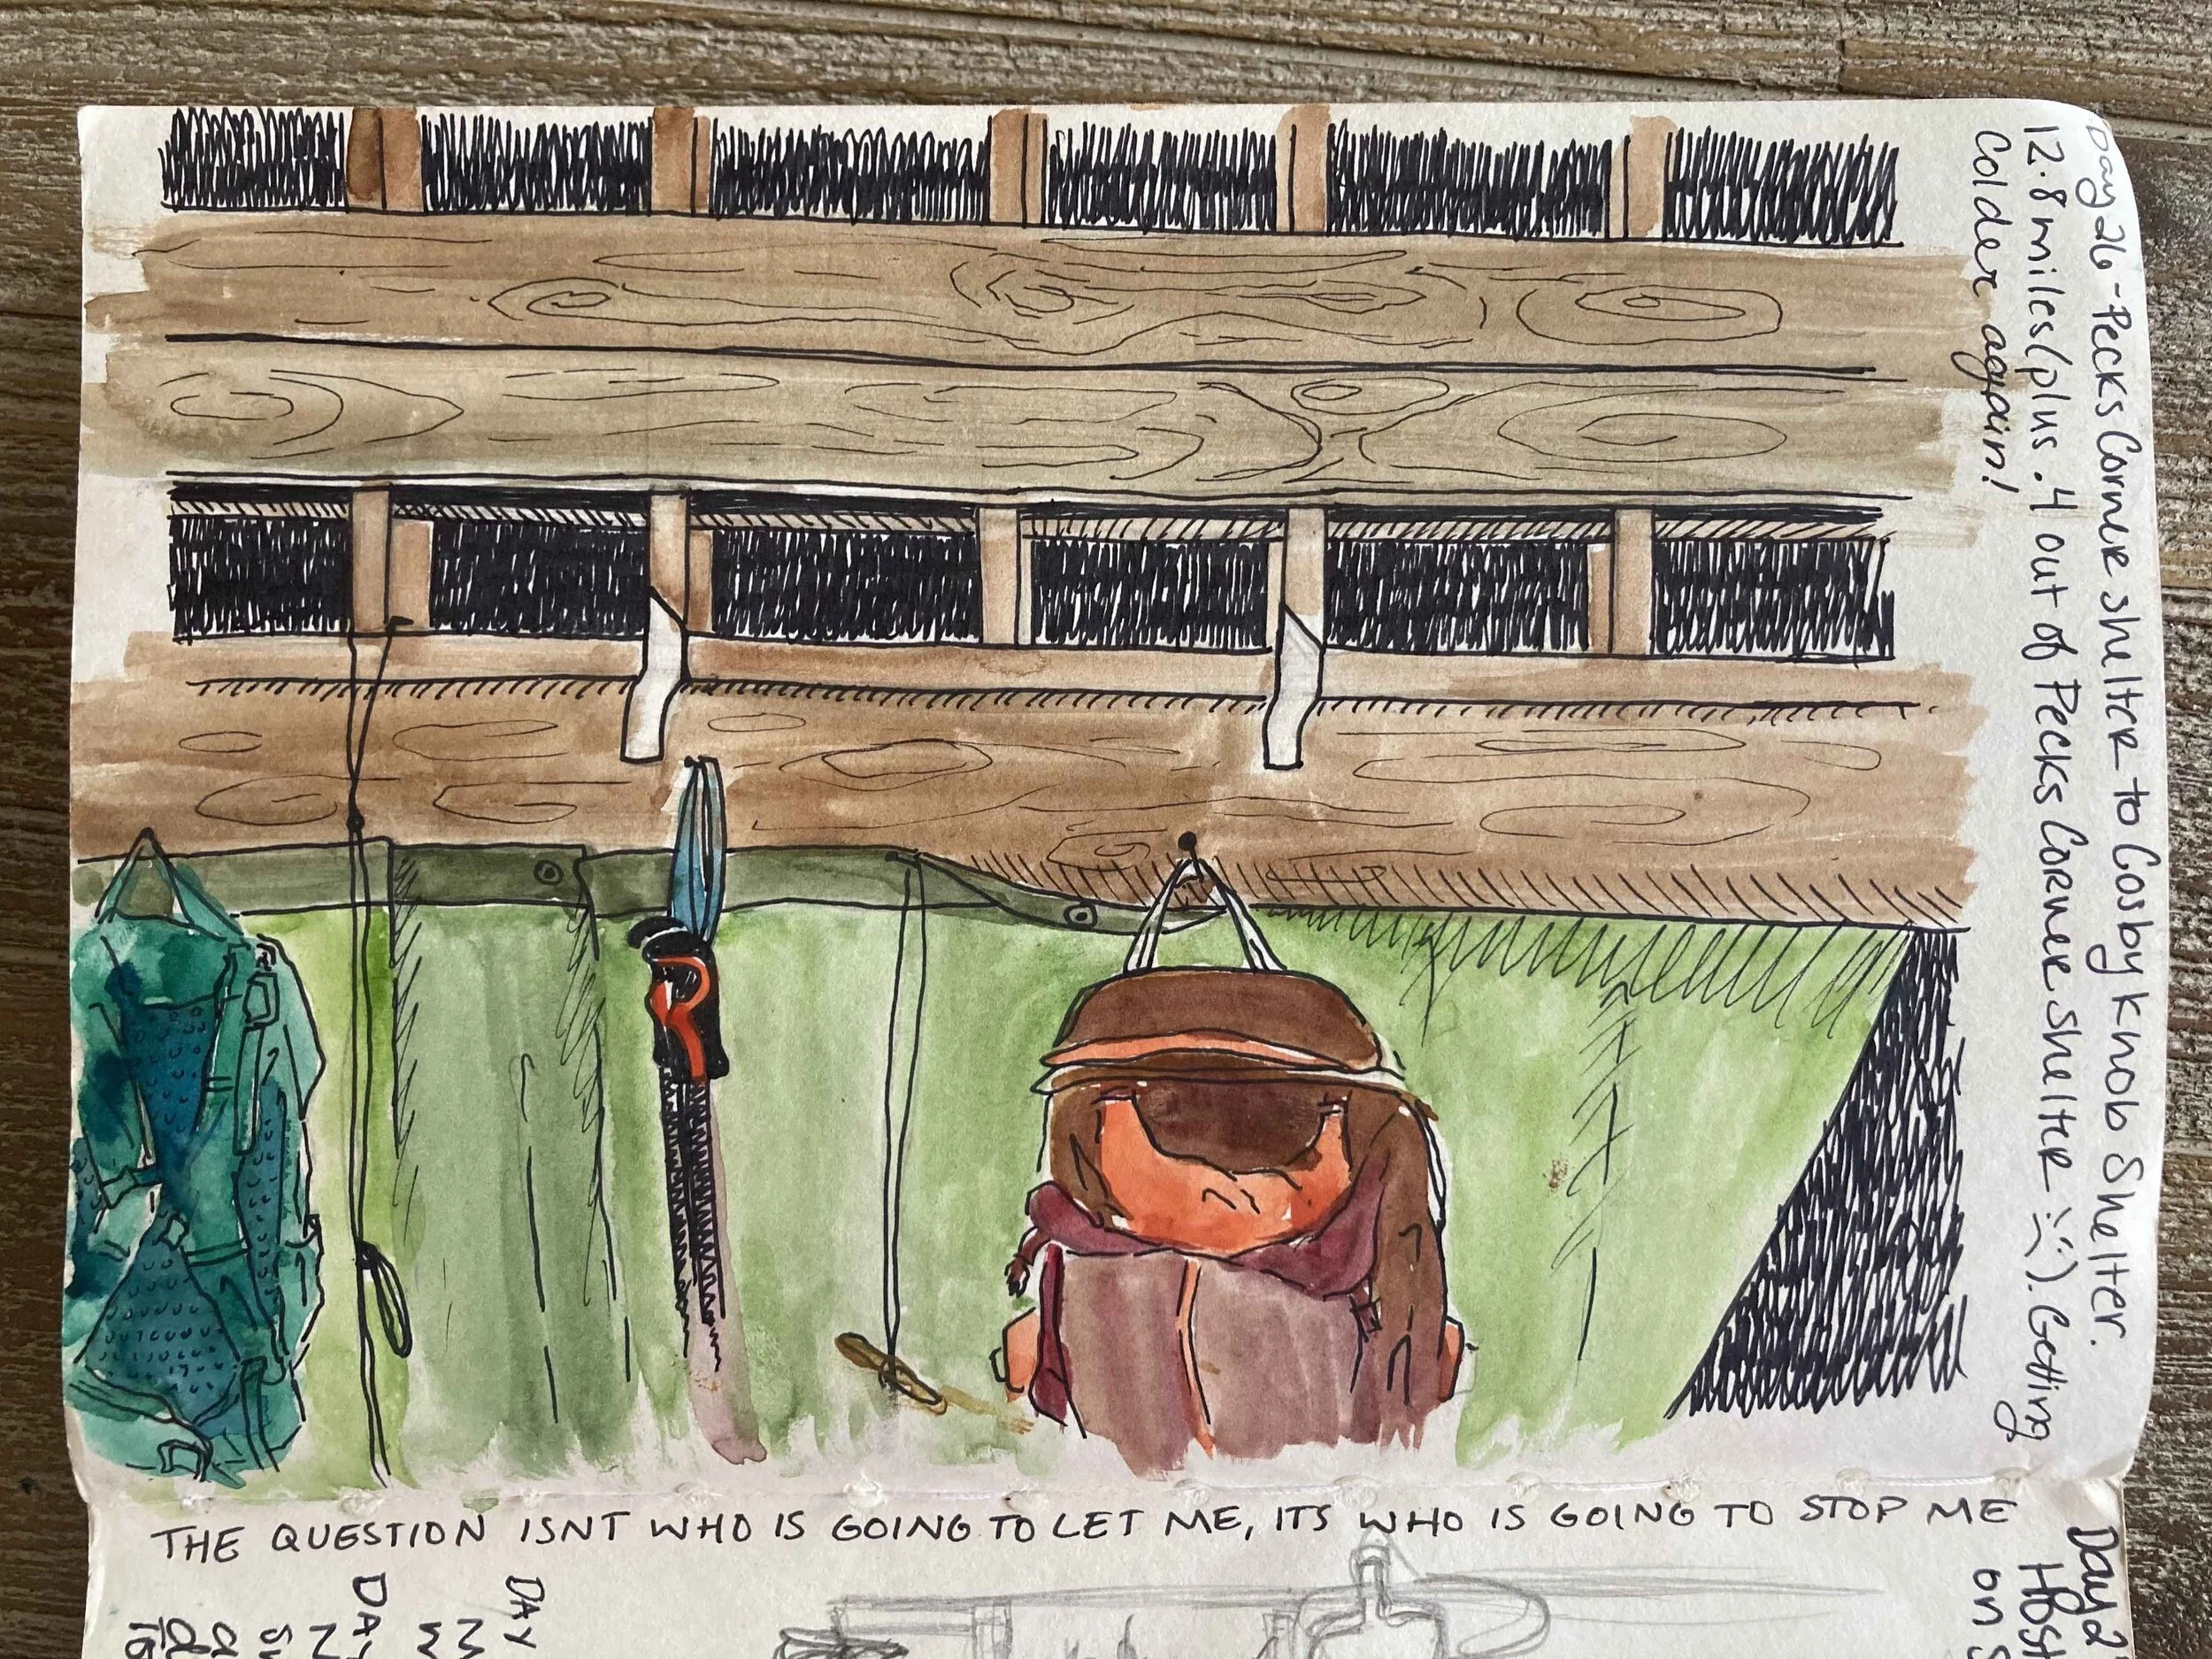 Day 26 - Pecks Corner shelter to Cosby Knob Shelter.
12.8 miles (plus .4 out of Pecks Corner shelter :(). Getting
Colder again!
THE QUESTION ISNT WHO IS GOING TO LET ME, ITS WHO IS GOING TO STOP ME
Day 2
Host
on S
DAY
DAY